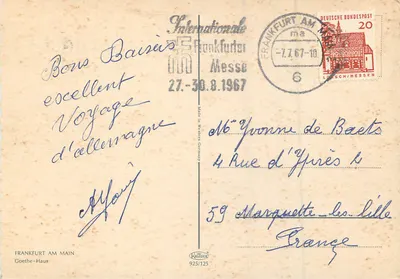 Internationale
Frankfurter
Messe
27.-30.8.1967
FRANKFURT AM MAIN
ma
-7.7.67-18
6
DEUTSCHE BUNDESPOST
20
LORSCH/HESSEN
Bons Baisers
excellent
Voyage
d'allemagne
FRANKFURT AM MAIN
Goethe-Haus
925/125
Me Yvonne de Baets
4 Rue d'Ypres 4
59 Marquette-les-lille
France